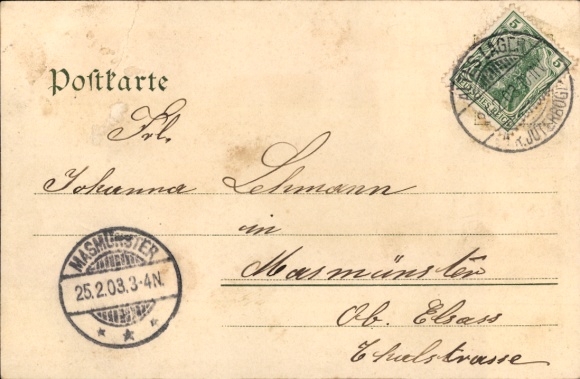 Postkarte
5 5
JÜTERBOG
Frl.
Johanna Lehmann
in
Masmünster
Ob. Elsass
Thalstrasse
MASMÜNSTER
25.2.03.3-4N.